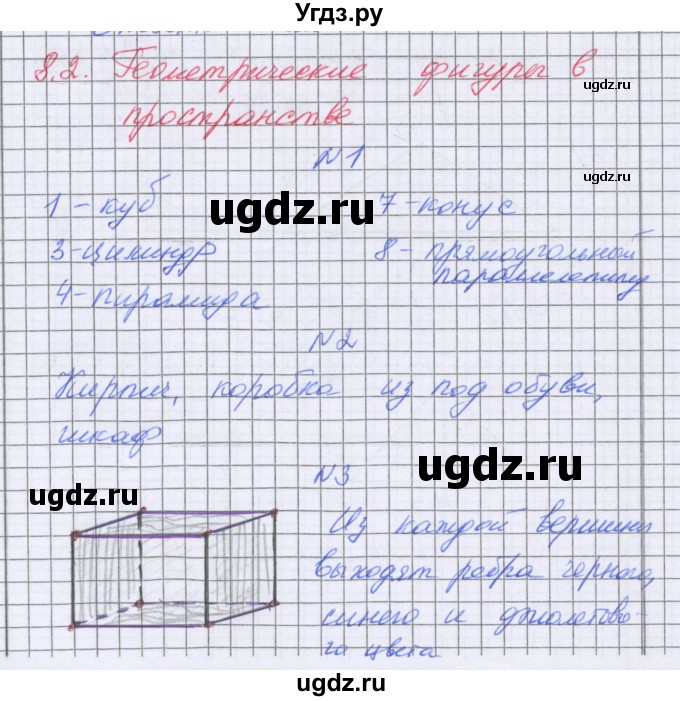 Угдз.ру
8.2. Геометрические фигуры в
ugdz.ru
пространстве
N1
ugdz.ru
1 - куб
7 - конус
ugdz.ru
3 - цилиндр
8 - прямоугольный
параллелепипед
4 - пирамида
N2
Кирпич, коробка из под обуви,
шкаф
ugdz.ru
N3
ugdz.ru
Из каждой вершины
выходят ребра черного,
синего и фиолетово-
го цвета
ugdz.ru
ugdz.ru